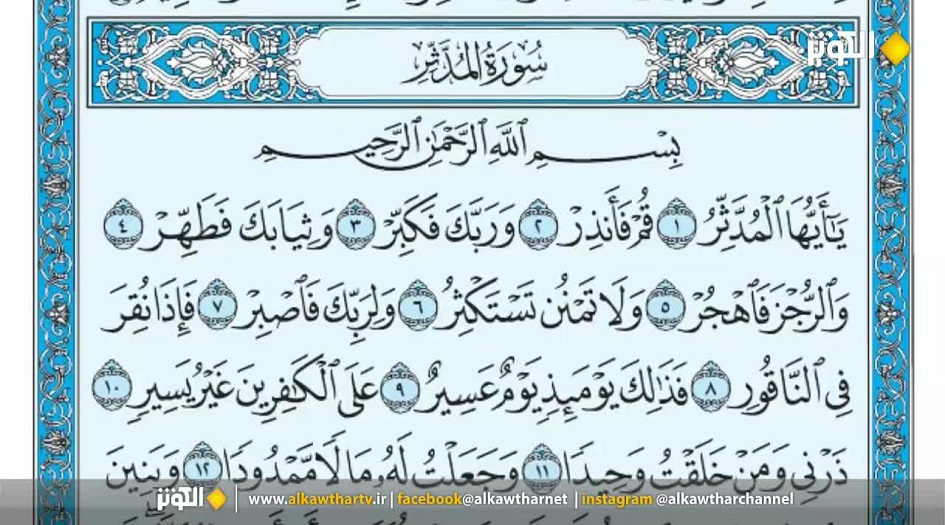 الكوثر
سُورَةُ المُدَّثِّر
بِسْمِ ٱللَّهِ ٱلرَّحْمَٰنِ ٱلرَّحِيمِ
يَٰٓأَيُّهَا ٱلْمُدَّثِّرُ ١ قُمْ فَأَنذِرْ ٢ وَرَبَّكَ فَكَبِّرْ ٣ وَثِيَابَكَ فَطَهِّرْ ٤
وَٱلرُّجْزَ فَٱهْجُرْ ٥ وَلَا تَمْنُن تَسْتَكْثِرُ ٦ وَلِرَبِّكَ فَٱصْبِرْ ٧ فَإِذَا نُقِرَ
فِى ٱلنَّاقُورِ ٨ فَذَٰلِكَ يَوْمَئِذٍ يَوْمٌ عَسِيرٌ ٩ عَلَى ٱلْكَٰفِرِينَ غَيْرُ يَسِيرٍ ١٠
ذَرْنِى وَمَنْ خَلَقْتُ وَحِيدًا ١١ وَجَعَلْتُ لَهُۥ مَالًا مَّمْدُودًا ١٢ وَبَنِينَ
الكوثر | www.alkawthartv.ir | facebook@alkawtharnet | instagram @alkawtharchannel